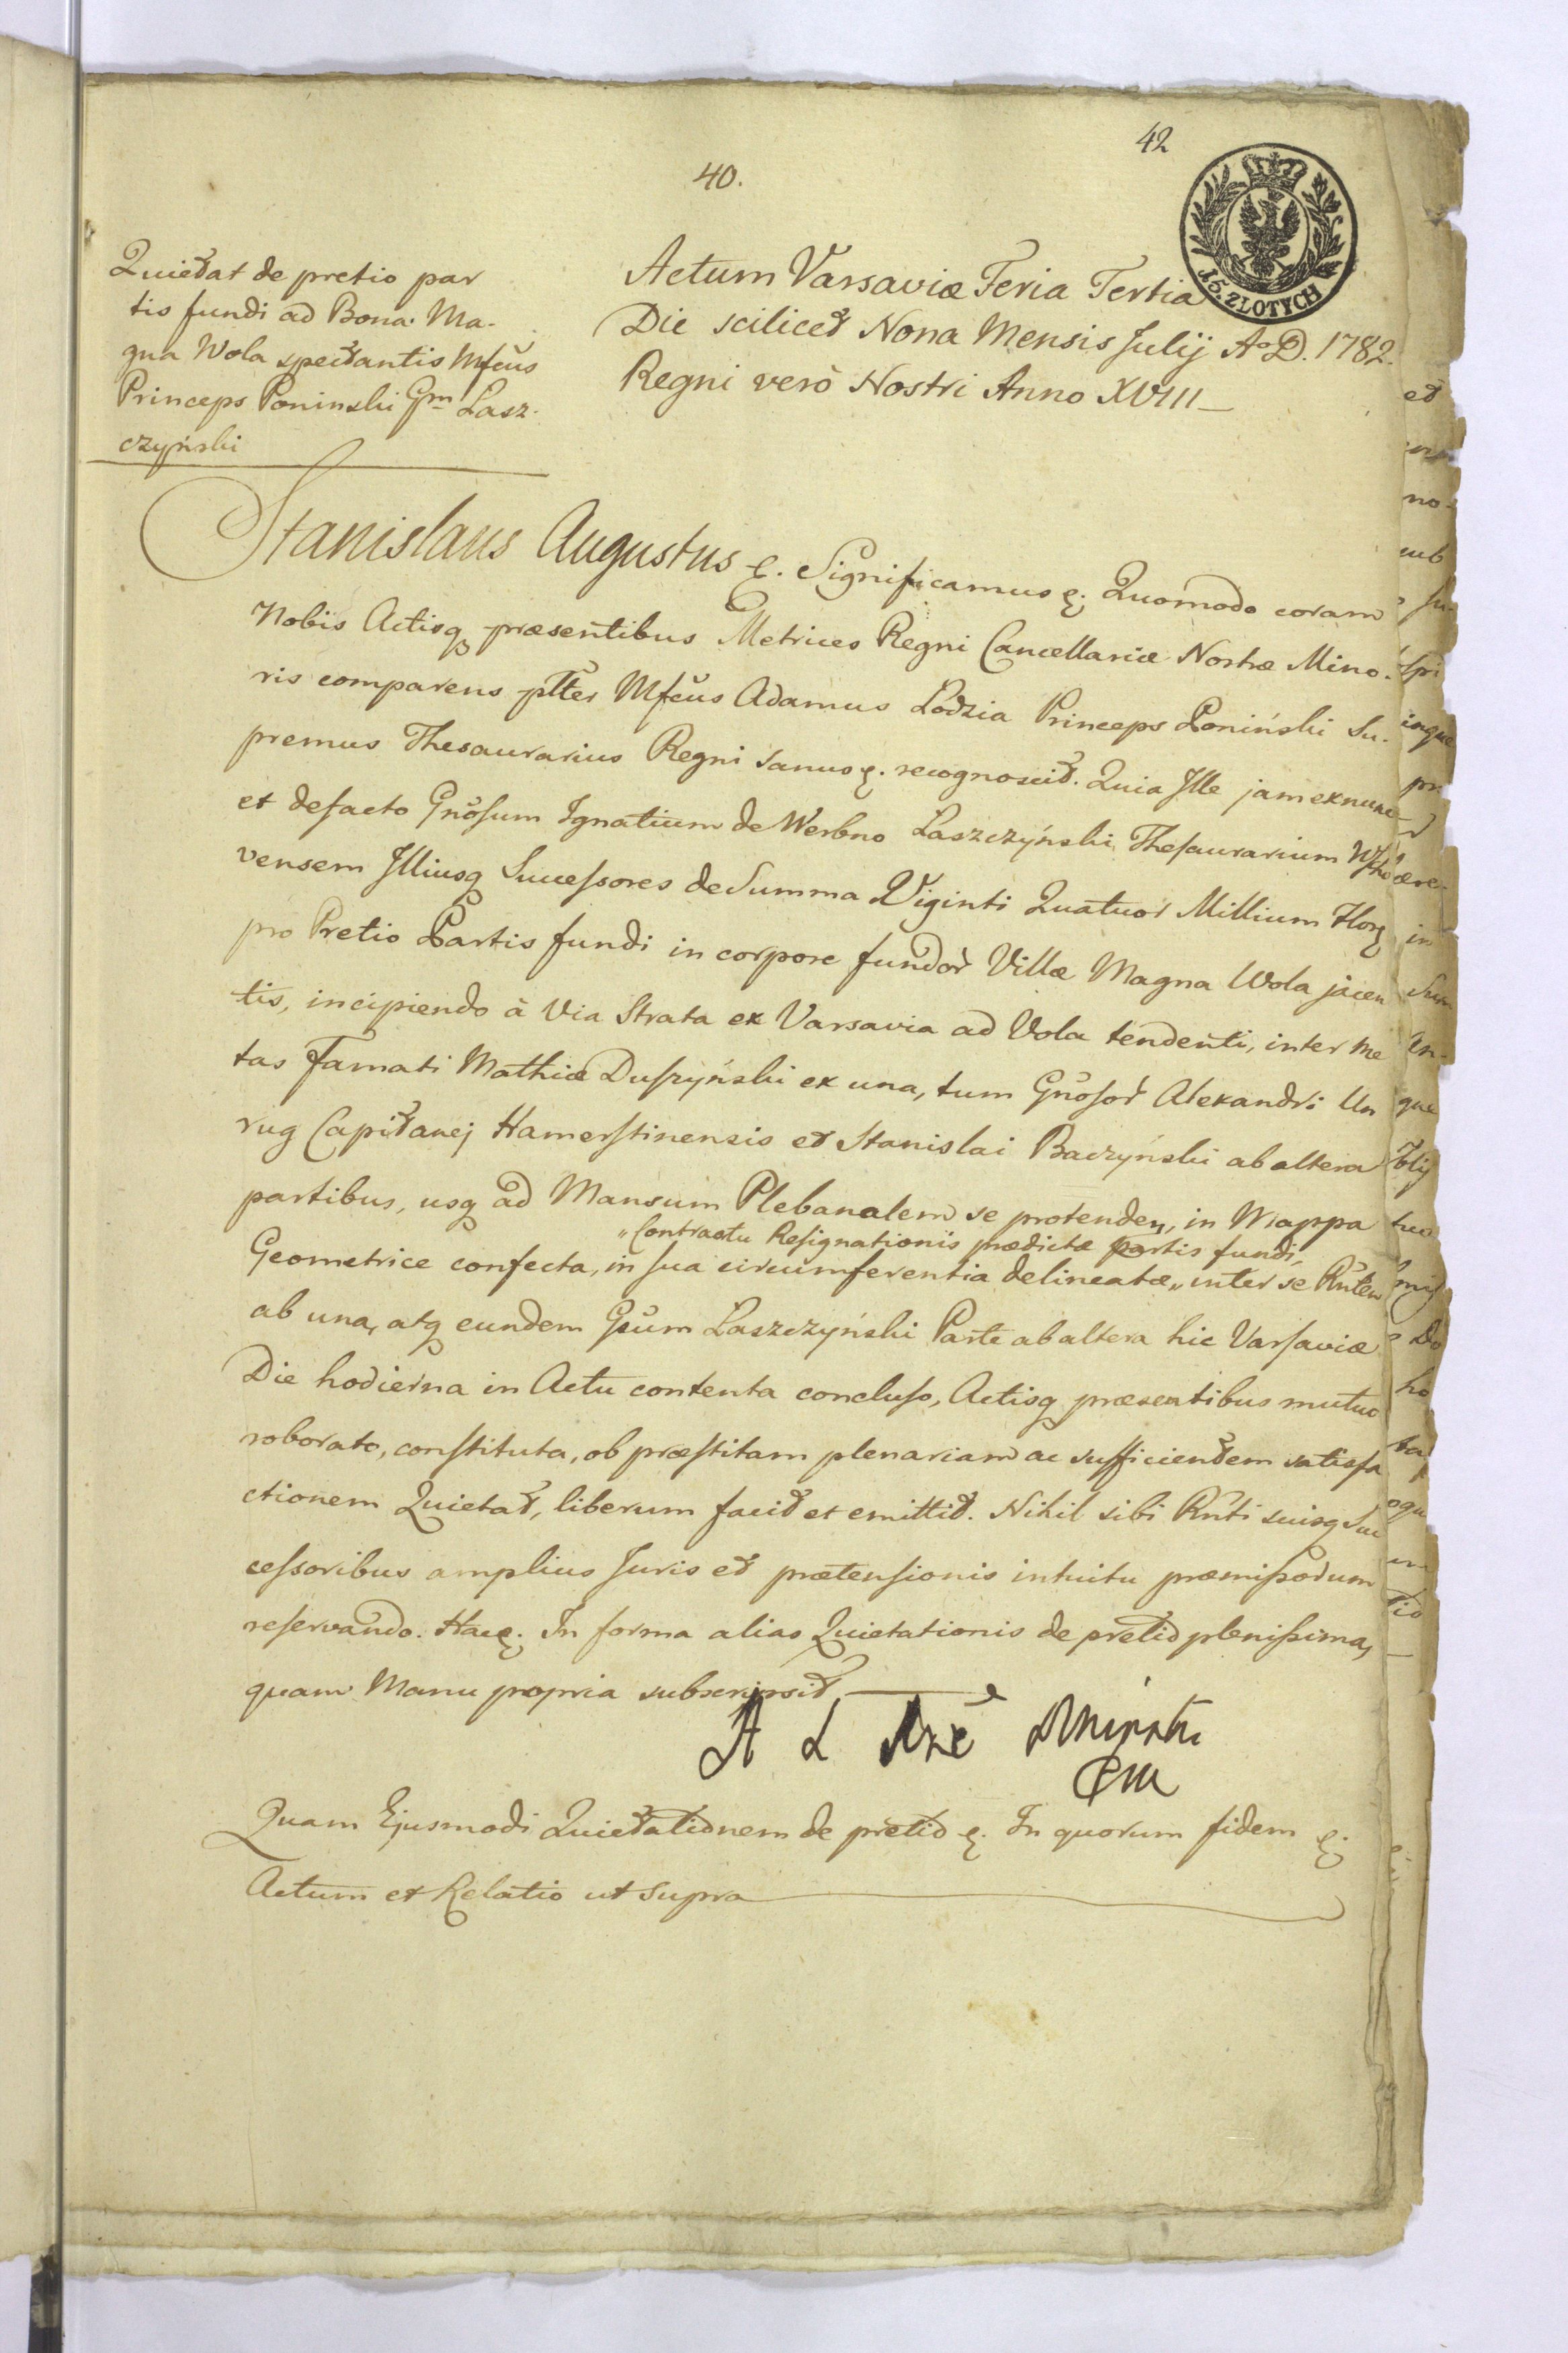 42
40.
15. ZŁOTYCH
Quietat de pretio par
tis fundi ad Bona Ma-
gna Wola spectantis Mfcus
Princeps Poninski Gm Lasz-
czyński
Actum Varsaviæ Feria Tertia
Die scilicet Nona Mensis Julij Ao D. 1782.
Regni verò Nostri Anno XVIII
Stanislaus Augustus &. Significamus &. Quomodo coram
Nobis Actisq præsentibus Metrices Regni Cancellariæ Nostræ Mino-
ris comparens pltter Mfcus Adamus Łodzia Princeps Poniński Su-
premus Thesaurarius Regni sanus &. recognoscit. Quia Ille jam exnunc
et defacto Gnosum Ignatium de Werbno Laszczyński Thesaurarium Wscho
vensem Illiusq Successores de Summa Viginti Quatuor Millium Flor
pro Pretio Partis fundi in corpore fundor Villæ Magna Wola jacen
tis, incipiendo à Via Strata ex Varsavia ad Vola tendenti, inter Me
tas Famati Mathiæ Duszyński ex una, tum Gnosor Alexandri Un
rug Capitanej Hamerstinensis et Stanislai Baczyński ab altera
partibus, usq ad Mansum Plebanalem se protenden, in Mappa
„Contractu Resignationis prædictæ partis fundi,
Geometrice confecta, in sua circumferentia delineatæ „ inter se Rnten
ab una, atq eundem Gsum Laszczyński Parte ab altera hic Varsaviæ
Die hodierna in Actu contenta concluso, Actisq præsentibus mutuo
roborato, constituta, ob præstitam plenariam ac sufficientem satisfa
ctionem Quietat, liberum facit et emittit. Nihil sibi Rnti suisq Suc
cessoribus amplius Juris et prætensionis intuitu præmissorum
reservando. Hac &. In forma alias Quietationis de pretio plenissima,
quam Manu propria subscripsit
A Ł
Quam Ejusmodi Quietationem de pretio &. In quorum fidem &.
Actum et Relatio ut supra